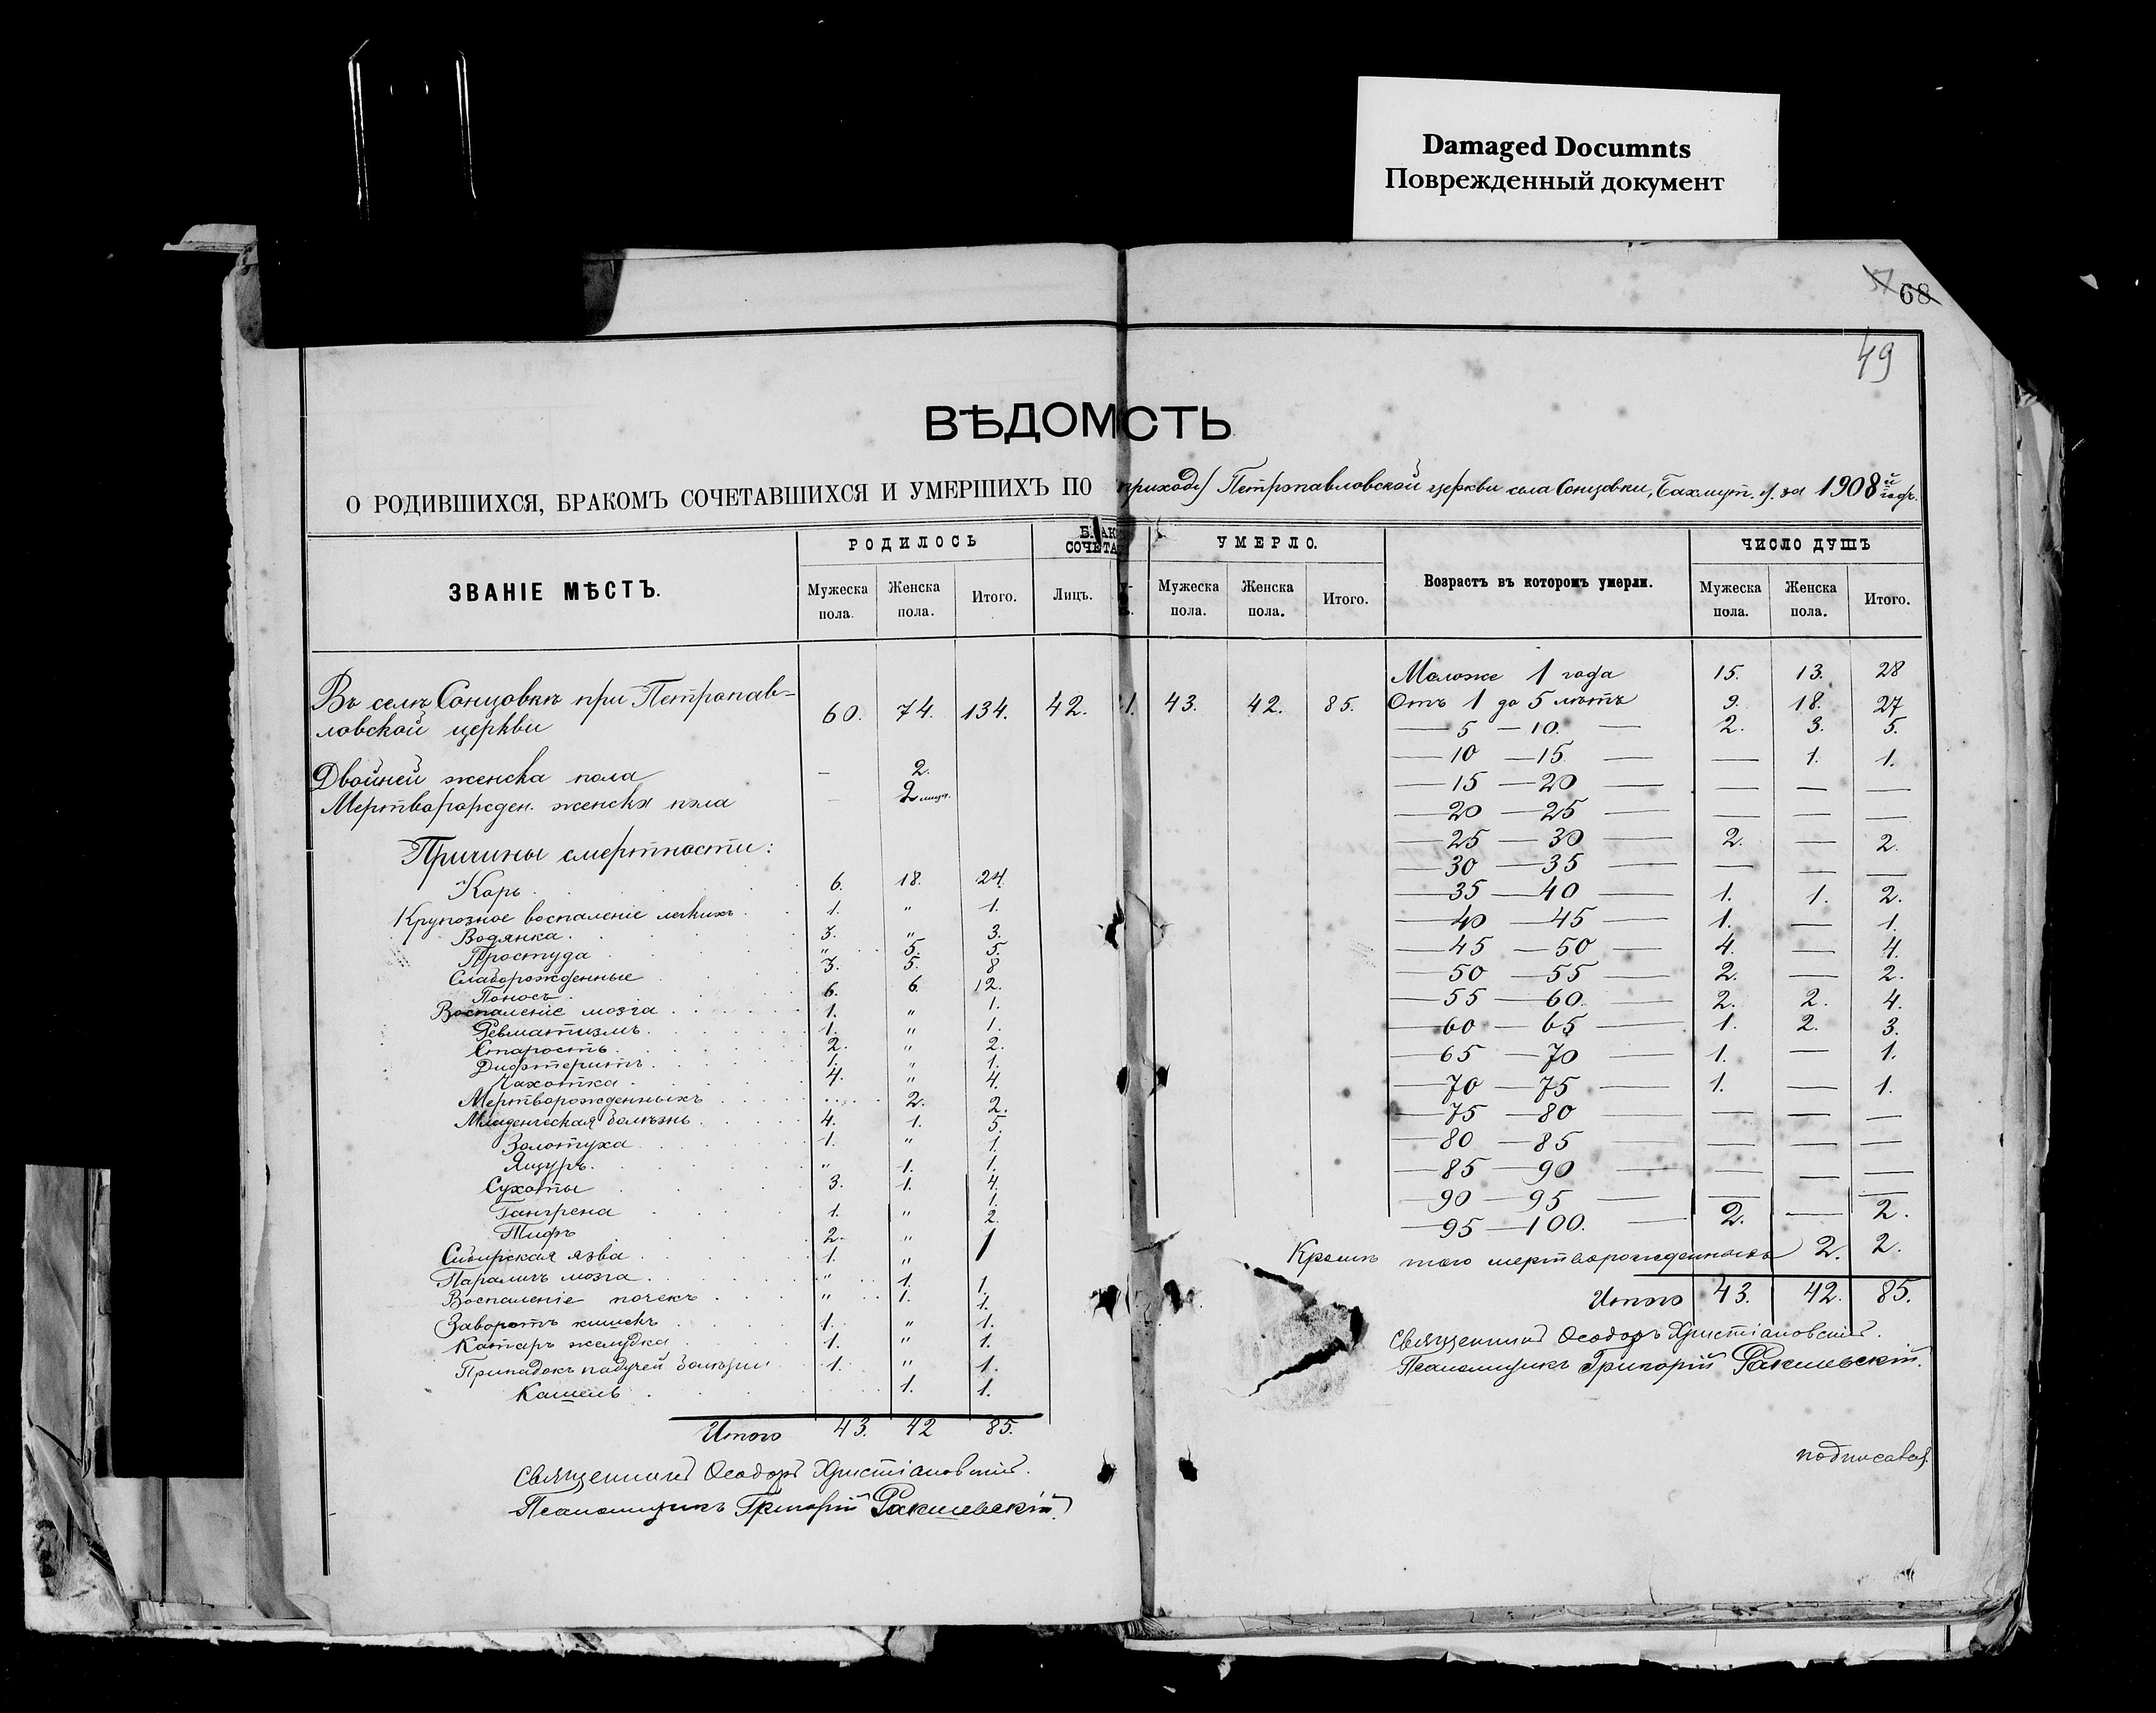 Damaged Documnts
Поврежденный документ
68
49
ВѢДОМСТЬ
О РОДИВШИХСЯ, БРАКОМЪ СОЧЕТАВШИХСЯ И УМЕРШИХЪ ПО приходу Петропавловской церкви села Сонцовки, Бахмут. у. за 1908й годъ.
ЗВАНІЕ МѢСТЪ. РОДИЛОСЬ БРАК СОЧЕТА УМЕРЛО. Возрастъ въ которомъ умерли. ЧИСЛО ДУШЪ
Мужеска пола. Женска пола. Итого. Лицъ. Мужеска пола. Женска пола. Итого. Мужеска пола. Женска пола. Итого.
Въ селѣ Сонцовкѣ при Петропав-
ловской церкви 60. 74. 134. 42. 21. 43. 42. 85.
Двойней женска пола — 2.
Мертворожден. женска пола — 2
Причины смертности:
Корь 6. 18. 24.
Крупозное воспаленіе легкихъ 1. " 1.
Водянка 3. " 3.
Простуда " 5. 5.
Слаборожденные 3. 5. 8
Поносъ 6. 6. 12.
Воспаленіе мозга 1. " 1.
Ревматизмъ 1. " 1.
Старость 2. " 2.
Дифтеритъ 1. " 1.
Чахотка 4. " 4.
Мертворожденныхъ 2. 2.
Младенческая болѣзнь 4. 1. 5.
Золотуха 1. " 1.
Ящуръ " 1. 1.
Сухоты 3. 1. 4.
Гангрена 1. " 1.
Тифъ 2. " 2.
Сибирская язва 1. " 1
Параличъ мозга " 1. 1.
Воспаленіе почекъ " 1. 1.
Заворотъ кишекъ 1. " 1.
Катаръ желудка 1. " 1.
Припадокъ падучей болѣзни 1. " 1.
Кашель 1. 1.
Итого 43. 42 85.
Священникъ Ѳеодоръ Христіановскій.
Псаломщикъ Григорій Ракшевскій.
Моложе 1 года 15. 13. 28
Отъ 1 до 5 лѣтъ 9. 18. 27
— 5 — 10. — 2. 3. 5.
— 10 — 15 — — 1. 1.
— 15 — 20 — — — —
— 20 — 25 — — — —
— 25 — 30 — 2. — 2.
— 30 — 35 — — — —
— 35 — 40 — 1. 1. 2.
— 40 — 45 — 1. — 1.
— 45 — 50 — 4. — 4.
— 50 — 55 — 2. — 2.
— 55 — 60. — 2. 2. 4.
— 60 — 65 — 1. 2. 3.
— 65 — 70 — 1. — 1.
— 70 — 75 — 1. — 1.
— 75 — 80 — — — —
— 80 — 85 — — — —
— 85 — 90 — — — —
— 90 — 95 — — —
— 95 — 100. — 2. — 2.
Кромѣ того мертворожденныхъ 2. 2.
Итого 43. 42. 85.
Священникъ Ѳеодоръ Христіановскій.
Псаломщикъ Григорій Ракшевскій.